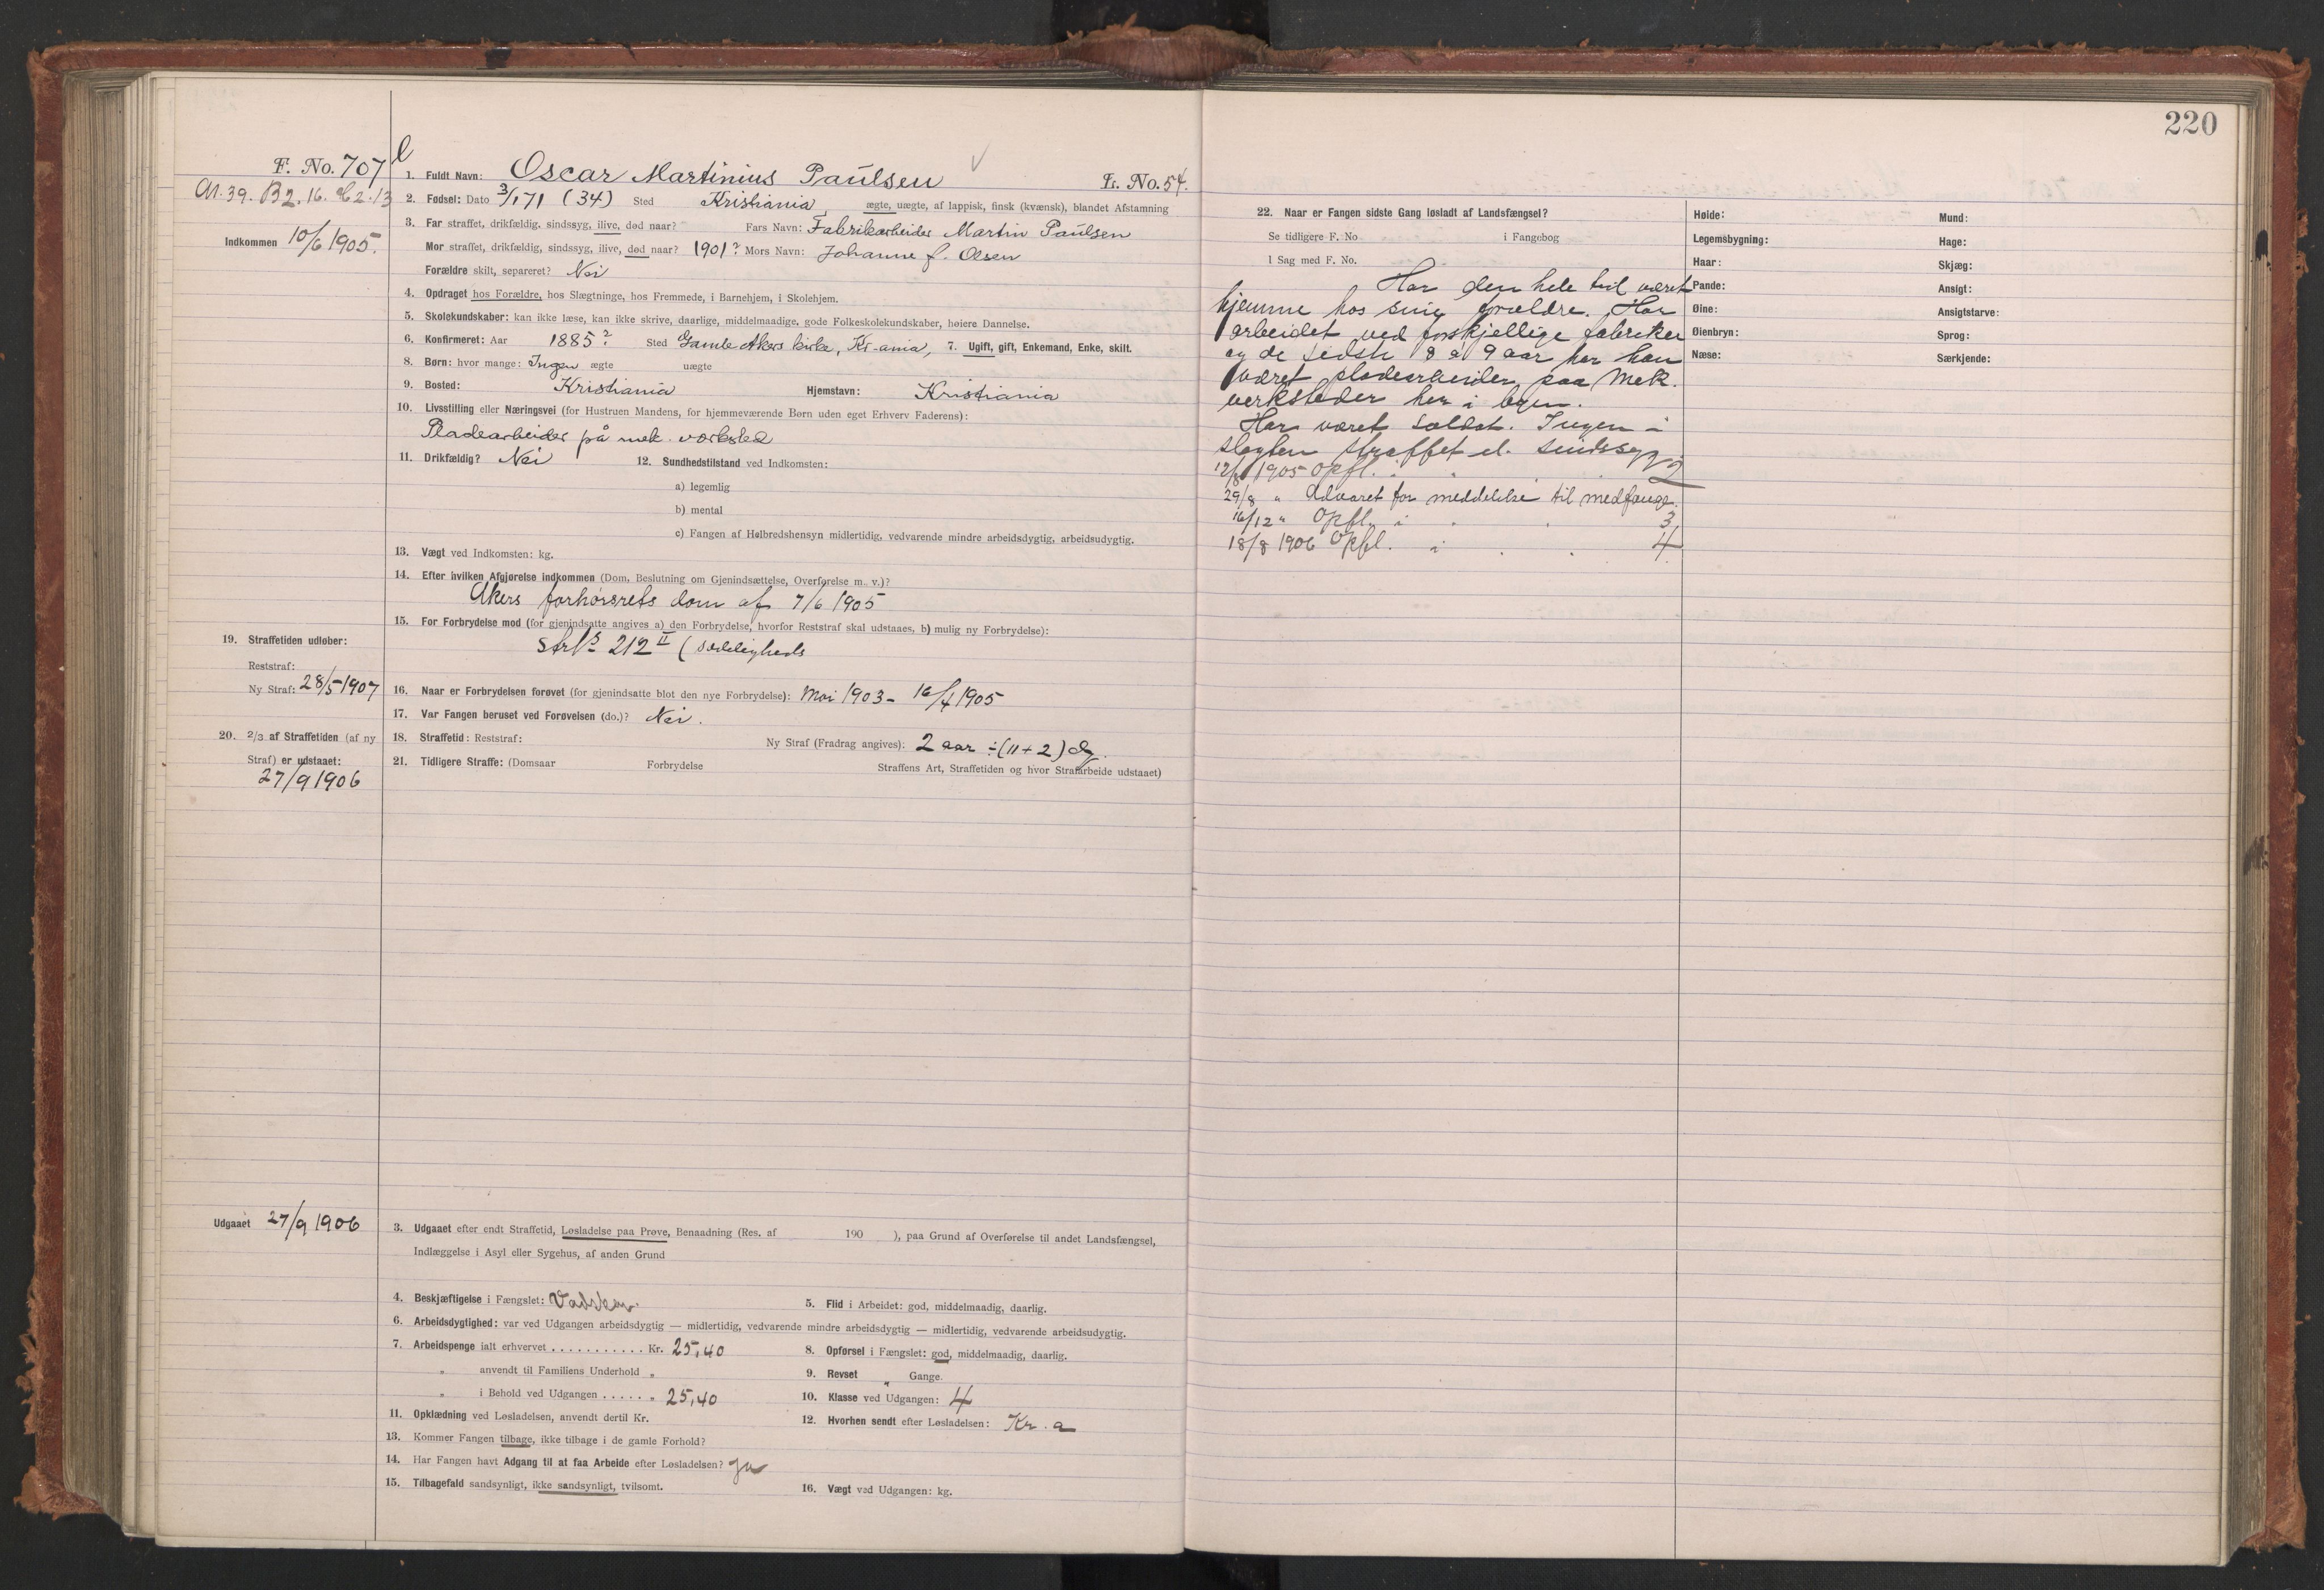 220
F. No. 707
1. Fuldt Navn: Oscar Martinius Paulsen
L. No. 54.
A1.39. B2.16. C2.13
2. Fødsel: Dato 3/1 71 (34) Sted Kristiania ægte, uægte, af lappisk, finsk (kvænsk), blandet Afstamning
Indkommen 10/6 1905.
3. Far straffet, drikfældig, sindssyg, ilive, død naar? Fars Navn: Fabrikarbeider Martin Paulsen
Mor straffet, drikfældig, sindssyg, ilive, død naar? 1901? Mors Navn: Johanne f. Olsen
Forældre skilt, separeret? Nei
4. Opdraget hos Forældre, hos Slægtninge, hos Fremmede, i Barnehjem, i Skolehjem.
5. Skolekundskaber: kan ikke læse, kan ikke skrive, daarlige, middelmaadige, gode Folkeskolekundskaber, høiere Dannelse.
6. Konfirmeret: Aar 1885? Sted Gamle Akers kirke, Kr-ania, 7. Ugift, gift, Enkemand, Enke, skilt.
8. Børn: hvor mange: Ingen ægte uægte
9. Bosted: Kristiania Hjemstavn: Kristiania
10. Livsstilling eller Næringsvei (for Hustruen Mandens, for hjemmeværende Børn uden eget Erhverv Faderens):
Pladearbeider på mek. værksted
11. Drikfældig? Nei 12. Sundhedstilstand ved Indkomsten:
a) legemlig
b) mental
c) Fangen af Helbredshensyn midlertidig, vedvarende mindre arbeidsdygtig, arbeidsudygtig.
13. Vægt ved Indkomsten: kg.
14. Efter hvilken Afgjørelse indkommen (Dom, Beslutning om Gjenindsættelse, Overførelse m. v.)?
Akers forhørsrets dom af 7/6 1905
15. For Forbrydelse mod (for gjenindsatte angives a) den Forbrydelse, hvorfor Reststraf skal udstaaes, b) mulig ny Forbrydelse):
212 II (sædeligheds
19. Straffetiden udløber:
Reststraf:
Ny Straf: 28/5 1907
16. Naar er Forbrydelsen forøvet (for gjenindsatte blot den nye Forbrydelse): Mai 1903 - 16/4 1905
17. Var Fangen beruset ved Forøvelsen (do.)? Nei.
20. 2/3 af Straffetiden (af ny
Straf) er udstaaet:
27/9 1906
18. Straffetid: Reststraf: Ny Straf (Fradrag angives): 2 aar ÷ (11 + 2) dg.
21. Tidligere Straffe: (Domsaar Forbrydelse Straffens Art, Straffetiden og hvor Strafarbeide udstaaet)
Udgaaet 27/9 1906
3. Udgaaet efter endt Straffetid, Løsladelse paa Prøve, Benaadning (Res. af 190 ), paa Grund af Overførelse til andet Landsfængsel,
Indlæggelse i Asyl eller Sygehus, af anden Grund
4. Beskjæftigelse i Fængslet: 5. Flid i Arbeidet: god, middelmaadig, daarlig.
6. Arbeidsdygtighed: var ved Udgangen arbeidsdygtig — midlertidig, vedvarende mindre arbeidsdygtig — midlertidig, vedvarende arbeidsudygtig.
7. Arbeidspenge ialt erhvervet ........... Kr. 25,40 8. Opførsel i Fængslet: god, middelmaadig, daarlig.
„ anvendt til Familiens Underhold „ 9. Revset „ Gange.
„ i Behold ved Udgangen ..... „ 25,40 10. Klasse ved Udgangen: 4
11. Opklædning ved Løsladelsen, anvendt dertil Kr. 12. Hvorhen sendt efter Løsladelsen: Kr.a
13. Kommer Fangen tilbage, ikke tilbage i de gamle Forhold?
14. Har Fangen havt Adgang til at faa Arbeide efter Løsladelsen? Ja
15. Tilbagefald sandsynligt, ikke sandsynligt, tvilsomt. 16. Vægt ved Udgangen: kg.
22. Naar er Fangen sidste Gang løsladt af Landsfængsel?
Se tidligere F. No i Fangebog
I Sag med F. No.
Har den hele tid været
hjemme hos sine forældre. Har
arbeidet ved forskjellige fabriker
og de sidste 8 a 9 aar har han
været pladearbeider paa Mek.
verksteder her i byen.
Har været soldat. Ingen i
slegten straffet el. sindssyg
12/8 1905 Opfl. i 2
29/8 „ Advaret for meddelelse til medfange.
16/12 „ Opfl. i 3
18/8 1906 Opfl. i 4
Høide:
Legemsbygning:
Haar:
Pande:
Øine:
Øienbryn:
Næse:
Mund:
Hage:
Skjæg:
Ansigt:
Ansigtstarve:
Sprog:
Særkjende: